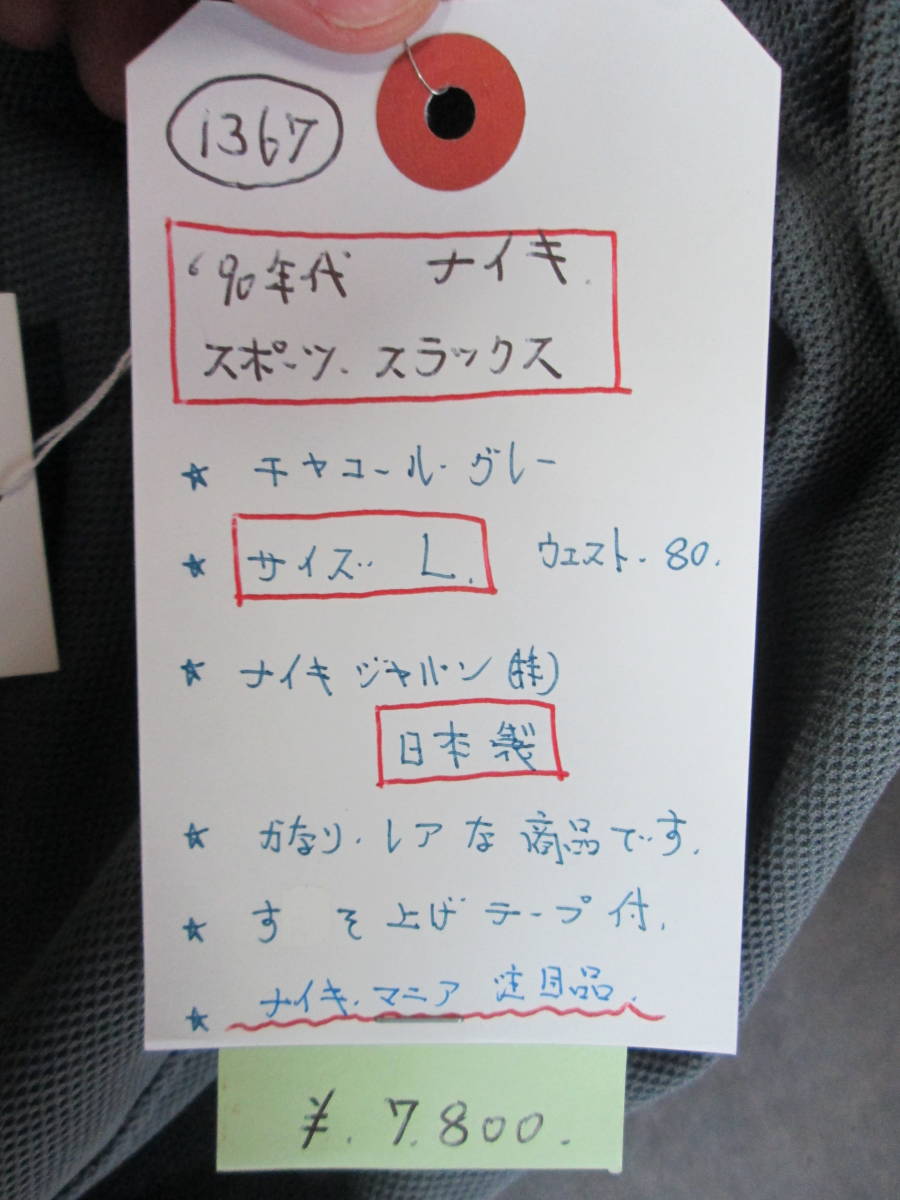 1367
'90年代 ナイキ.
スポーツ. スラックス
☆ チャコール・グレー
☆ サイズ・・ L. ウエスト・80.
☆ ナイキ ジャパン(株)
日本製
☆ かなり・レアな商品です.
☆ すそ上げテープ付.
☆ ナイキ・マニア 注目品.
¥. 7.800.